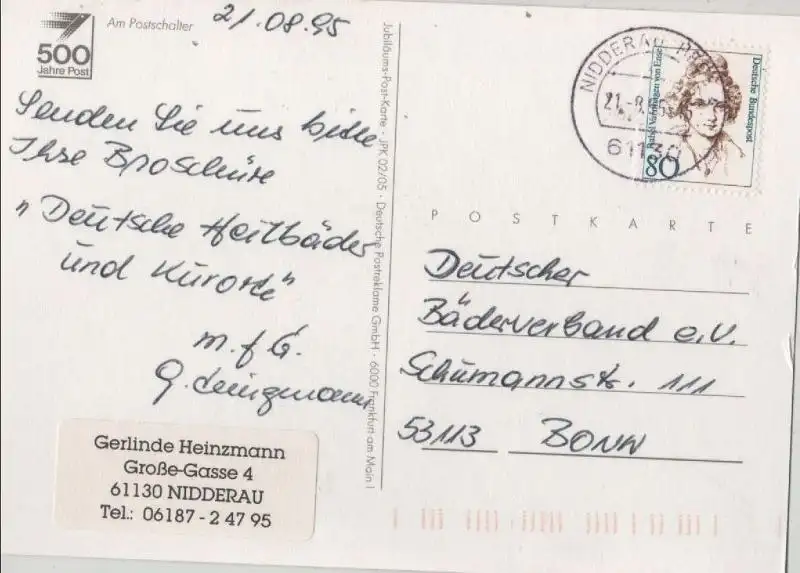 21.08.95
Am Postschalter
500
Jahre Post
Senden Sie uns bitte
Ihre Broschüre
"Deutsche Heilbäder
und Kurorte"
m.f.G.
G. Heinzmann
Gerlinde Heinzmann
Große-Gasse 4
61130 NIDDERAU
Tel.: 06187 - 2 47 95
Jubiläums-Post-Karte · JPK 02/05 · Deutsche Postreklame GmbH · 6000 Frankfurt am Main 1
NIDDERAU
21.-8.95
61130
Rahel Varnhagen von Ense
Deutsche Bundespost
80
POSTKARTE
Deutscher
Bäderverband e.V.
Schumannstr. 111
53113 BONN